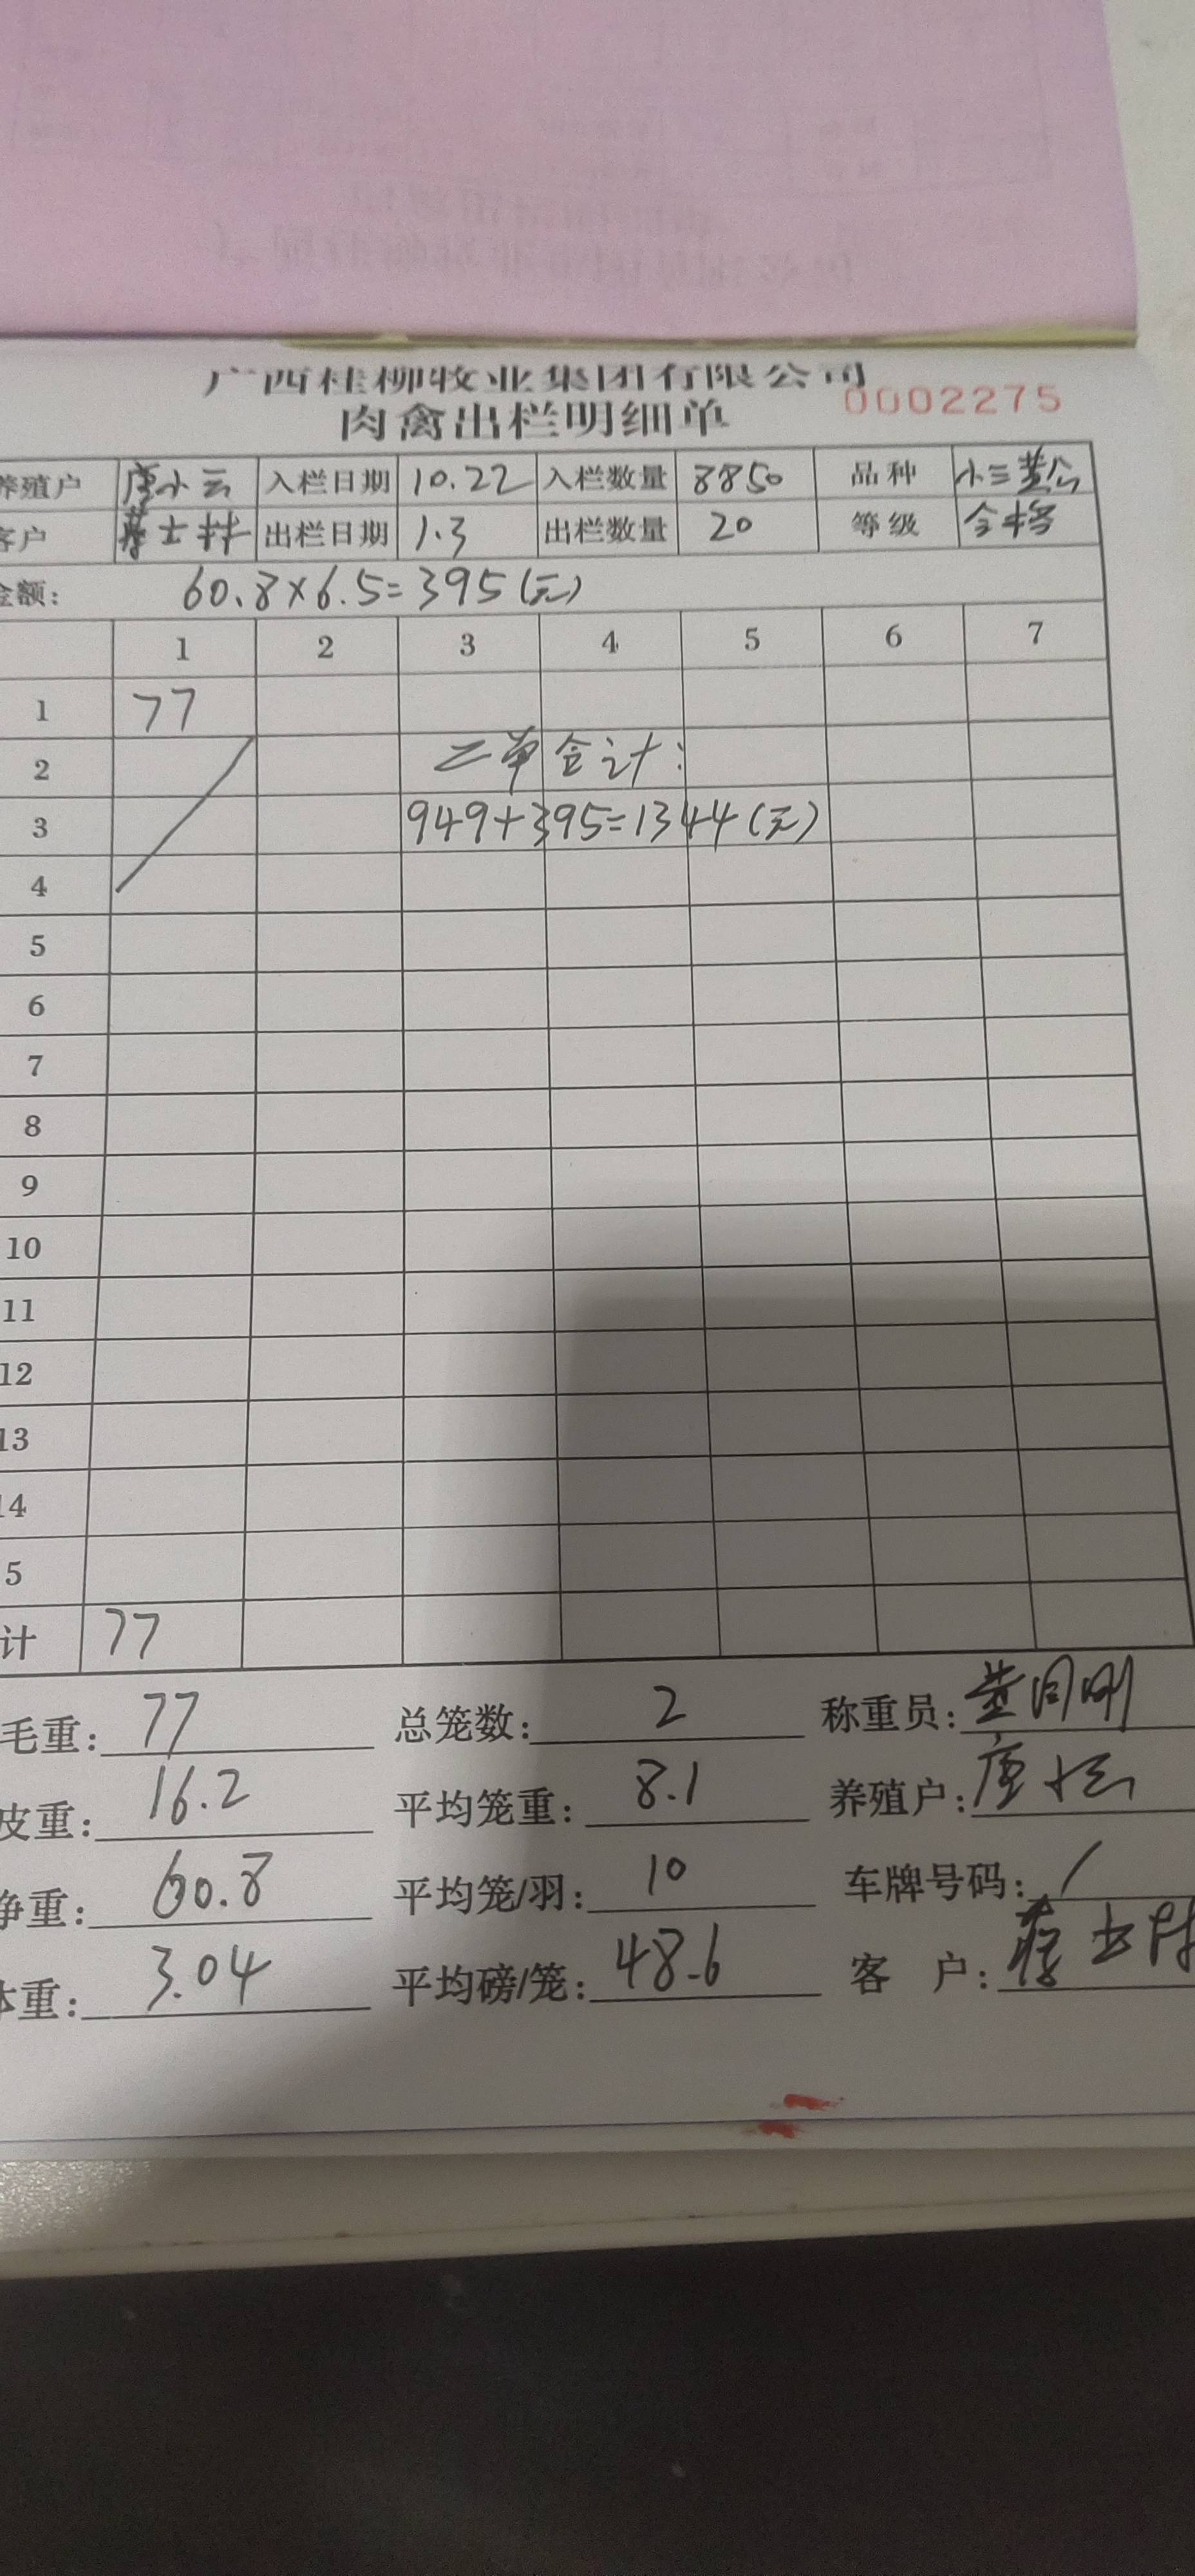 广西桂柳牧业集团有限公司
肉禽出栏明细单 0002275
养殖户 唐小云 入栏日期 10.22 入栏数量 8850 品种 小三黄公
客户 出栏日期 1.3 出栏数量 20 等级 合格
金额: 60.8×6.5=395(元)
1 2 3 4 5 6 7
1 77
2 二单合计:
3 949+395=1344(元)
4
5
6
7
8
9
10
11
12
13
14
5
计 77
毛重: 77 总笼数: 2 称重员:
皮重: 16.2 平均笼重: 8.1 养殖户: 唐小云
净重: 60.8 平均笼/羽: 10 车牌号码: /
体重: 3.04 平均磅/笼: 48.6 客 户: